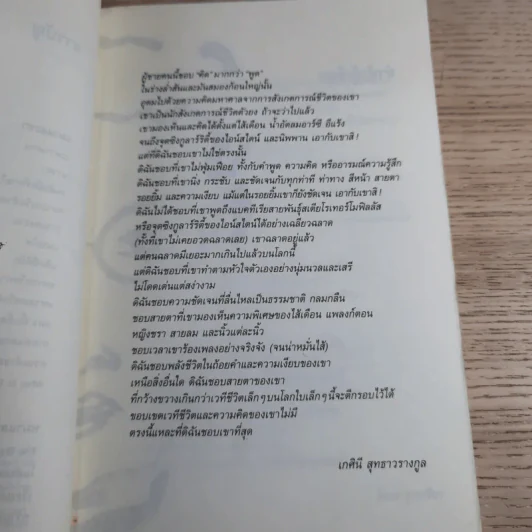 ผู้ชายคนนี้ชอบ "คิด" มากกว่า "พูด"
ในร่างล่ำสันและมันสมองก้อนใหญ่นั้น
อุดมไปด้วยความคิดมหาศาลจากการสังเกตการณ์ชีวิตของเขา
เขาเป็นนักสังเกตการณ์ชีวิตตัวยง ถ้าจะว่าไปแล้ว
เขามองเห็นและคิดได้ตั้งแต่ไส้เดือน น้ำอัดลมอาร์ซี อีแร้ง
จนถึงจุดซิงกูลาร์ริตี้ของไอน์สไตน์ และนิพพาน เอากับเขาสิ !
แต่ที่ดิฉันชอบเขาไม่ใช่ตรงนั้น
ดิฉันชอบที่เขาไม่ฟุ่มเฟือย ทั้งกับคำพูด ความคิด หรืออารมณ์ความรู้สึก
ดิฉันชอบที่เขานิ่ง กระชับ และชัดเจนกับทุกท่าที ท่าทาง สีหน้า สายตา
รอยยิ้ม และความเงียบ แม้แต่ในรอยยิ้มเขาก็ยังชัดเจน เอากับเขาสิ !
ดิฉันไม่ได้ชอบที่เขาพูดถึงแบคทีเรียสายพันธุ์สเตียโรเทอร์โมฟิลลัส
หรือจุดซิงกูลาร์ริตี้ของไอน์สไตน์ได้อย่างเฉลียวฉลาด
(ทั้งที่เขาไม่เคยอวดฉลาดเลย) เขาฉลาดอยู่แล้ว
แต่คนฉลาดมีเยอะมากเกินไปแล้วบนโลกนี้
แต่ดิฉันชอบที่เขาทำตามหัวใจตัวเองอย่างนุ่มนวลและเสรี
ไม่โดดเด่นแต่สง่างาม
ดิฉันชอบความชัดเจนที่ลื่นไหลเป็นธรรมชาติ กลมกลืน
ชอบสายตาที่เขามองเห็นความพิเศษของไส้เดือน แพลงก์ตอน
หญิงชรา สายลม และนิ้วแต่ละนิ้ว
ชอบเวลาเขาร้องเพลงอย่างจริงจัง (จนน่าหมั่นไส้)
ดิฉันชอบพลังชีวิตในถ้อยคำและความเงียบของเขา
เหนือสิ่งอื่นใด ดิฉันชอบสายตาของเขา
ที่กว้างขวางเกินกว่าเวทีชีวิตเล็กๆ บนโลกใบเล็กๆ นี้จะตีกรอบไว้ได้
ขอบเขตเวทีชีวิตและความคิดของเขาไม่มี
ตรงนี้แหละที่ดิฉันชอบเขาที่สุด
เกศินี สุทธาวรางกูล